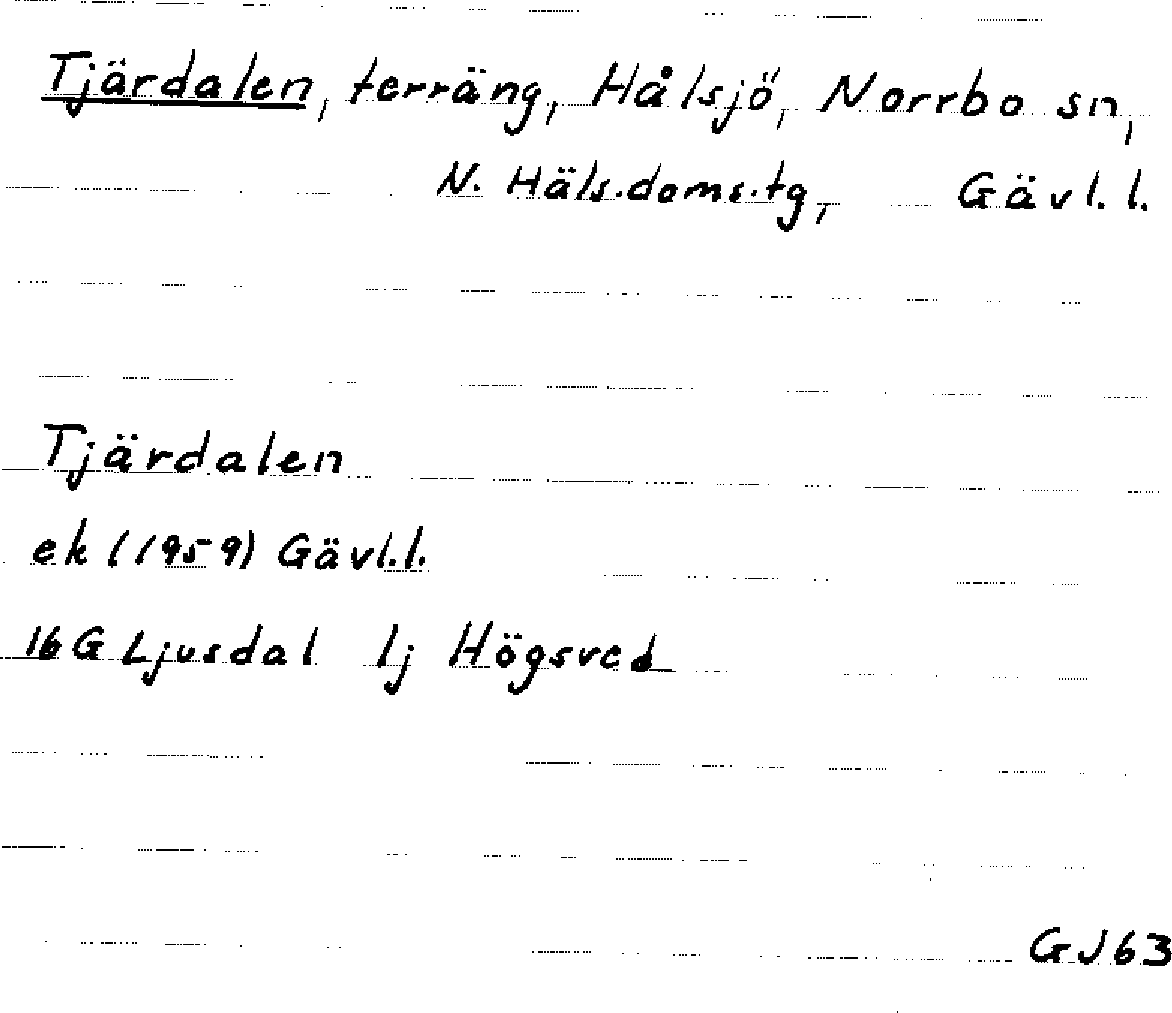 Tjärdalen, terräng, Hålsjö, Norrbo sn,
N. Häls.doms.tg, Gävl.l.
Tjärdalen
ek (1959) Gävl.l.
16G Ljusdal Ij Högsved
GJ63